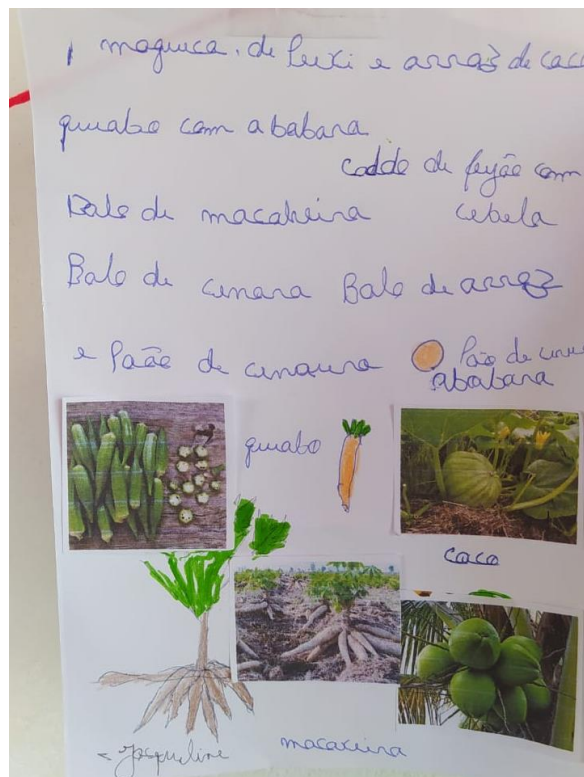 moquica. de Peixi e arroz de coco
quiabo com ababara
coddo de feijão com
Balo de macaxeira cebola
Balo de cenora Balo de arroz
e Paão de cenoura Pão de
ababara
quiabo
coco
Josqueline macaxeira